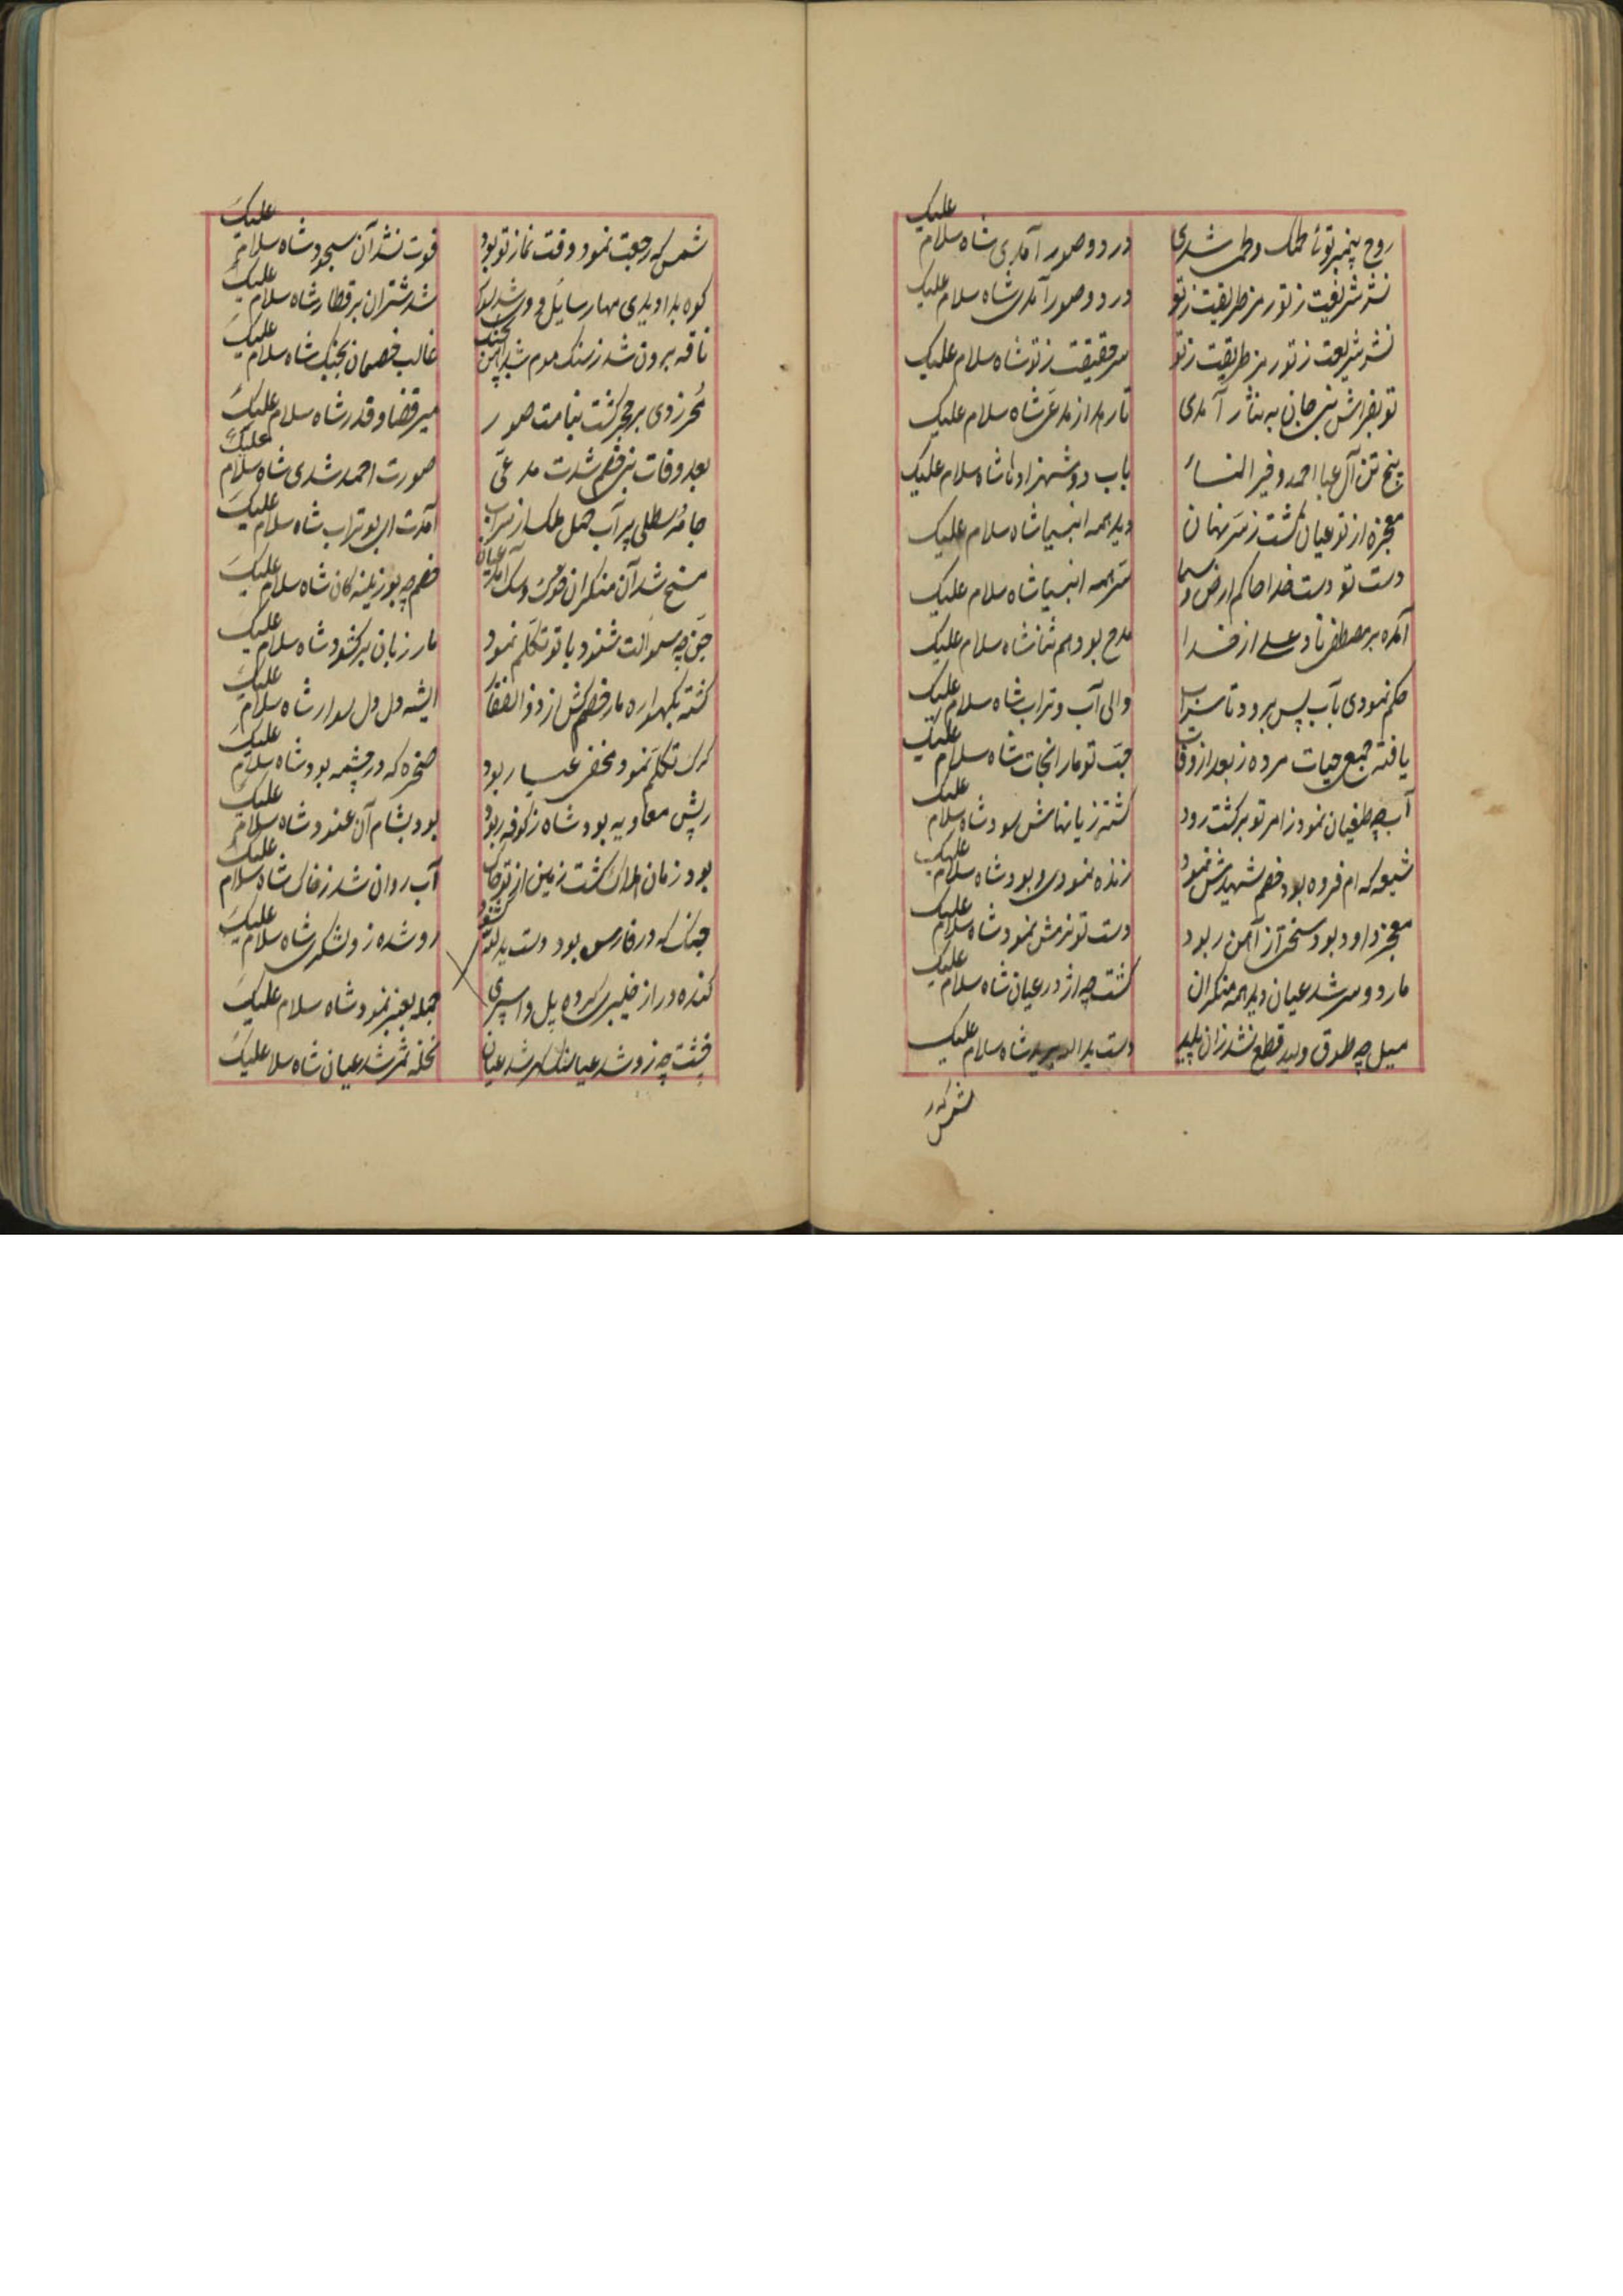 روح پیمبر توئی لحمک و لحمی شدی در دو صور آمدی شاه سلام علیک
نشر شریعت ز تو رمز طریقت ز تو در دو صور آمدی شاه سلام علیک
نشر شریعت ز تو رمز طریقت ز تو سر حقیقت ز تو شاه سلام علیک
تو بفراش نبی جان به نثار آمدی شاه سلام علیک
پنج تن آل عبا احمد و خیر النساء باب دو شهزاده‌ها شاه سلام علیک
معجزه از تو عیان گشت ز سر نهان دید همه انبیا شاه سلام علیک
دست تو دست خدا حاکم ارض و سما سر همه انبیا شاه سلام علیک
آمده بر مصطفی ناد علی از خدا مدح بود هم ثنا شاه سلام علیک
حکم نمودی بآب پس برود تا سراب والی آب و تراب شاه سلام علیک
یافته جمع حیات مرده ز بعد از وفات حب تو ما را نجات شاه سلام علیک
آب چه طغیان نمود ز امر تو برگشت رود گشته زیانهاش سود شاه سلام علیک
شیعه که ام فروه بود خصم شهیدش نمود زنده نمودی و بود شاه سلام علیک
معجز داود بود سختی از آهن ربود دست تو نرمش نمود شاه سلام علیک
مار دو سر شد عیان دید همه منکران گشت چه اژدر عیان شاه سلام علیک
میل چه طوق ولید قطع نشد زان پلید دست ید الله برید شاه سلام علیک
شمس که ر
شمس که رجعت نمود وقت نماز تو بود فوت نشد آن سجود شاه سلام علیک
کوه بداویدی مهار سایل و شد شتران بر قطار شاه سلام علیک
ناقه برون شد ز سنک موم شد آهن بچنک غالب خصمان بجنک شاه سلام علیک
مهر زدی بر حجر گشت بنامت صور میر قضا و قدر شاه سلام علیک
بعد وفات نبی خصم شدت مدعی صورت احمد شدی شاه سلام علیک
جامه سطلی پر آب حمل ملک از سراب آمدت ای بوتراب شاه سلام علیک
مسخ شد آن منکران خوک و سک آمد عیان خصم چه بوزینه‌کان شاه سلام علیک
جن چه سوالت شنود با تو تکلم نمود مار زبان برگشود شاه سلام علیک
کشته بگهواره مار خصم کش از ذوالفقار ای شه دل دل سوار شاه سلام علیک
کرک تکلم نمود مخفی عیار بود صخره که در چشمه بود شاه سلام علیک
ریش معاویه بود شاه ز کوفه ربود بود بشام آن عنود شاه سلام علیک
بود زمان گشت زمین از تو چاک آب روان شد ز خاک شاه سلام علیک
جنک که در فارس بود دست ید الله روشده زو لشکری شاه سلام علیک
کنده در از خیبری کرده پل و اسپری حمله بعنبر نمود شاه سلام علیک
خشت چه زر شد عیان سنک گهر شد عیان نخله ثمر شد عیان شاه سلام علیک